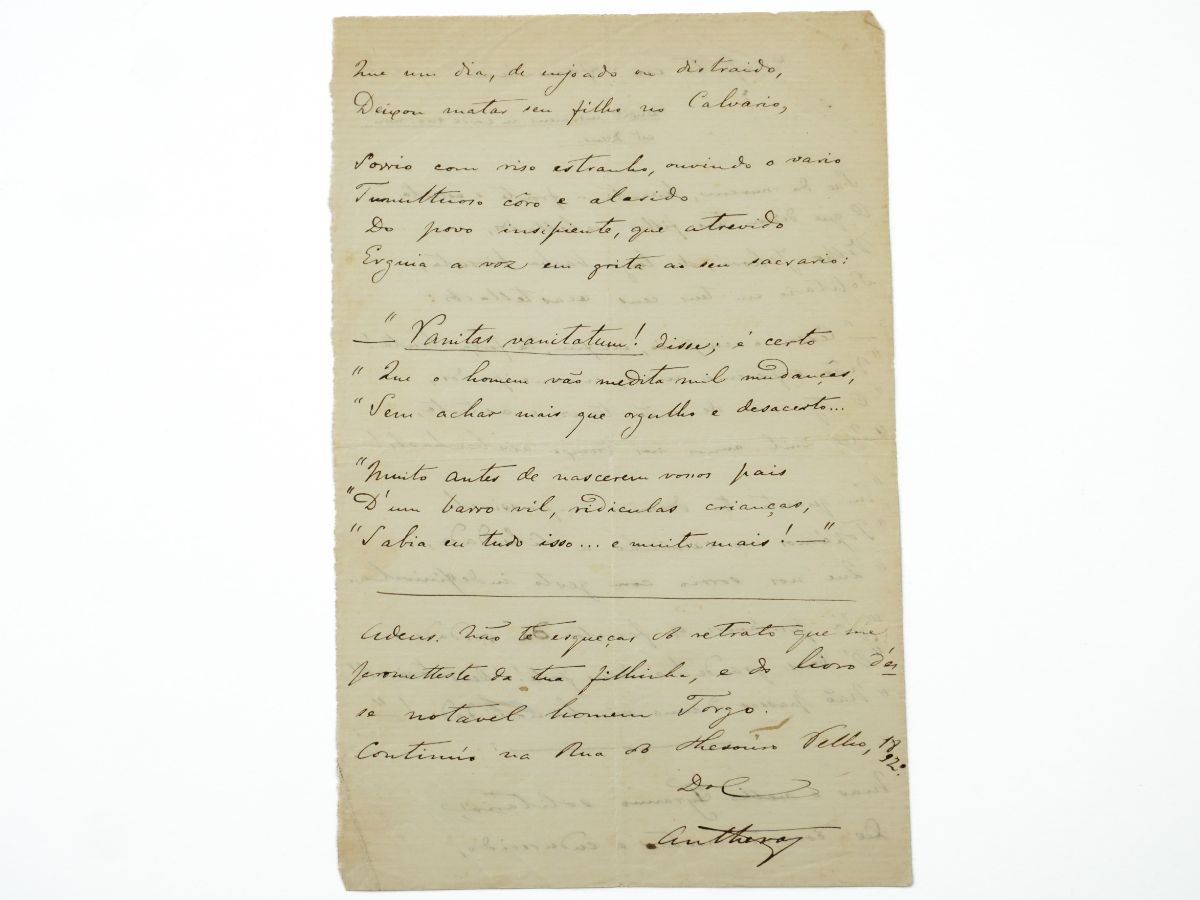 Que um dia, de enjoado ou distraido,
Deixou matar seu filho no Calvario,
Sorrio com riso estranho, ouvindo o vario
Tumultuoso côro e alarido
Do povo insipiente, que atrevido
Erguia a voz em grita ao seu sacrario:
— "Vanitas vanitatum! disse; é certo
"Que o homem vão medita mil mudanças,
"Sem achar mais que orgulho e desacerto...
"Muito antes de nascerem vossos pais
"D'um barro vil, ridiculas crianças,
"Sabia eu tudo isso... e muito mais! —"
Adeus. Não te esqueças do retrato que me
prometteste da tua filhinha, e do livro d'es
se notavel homem Torgo.
Continúo na Rua do Thesouro Velho, 18
2º
Do C
Anthero